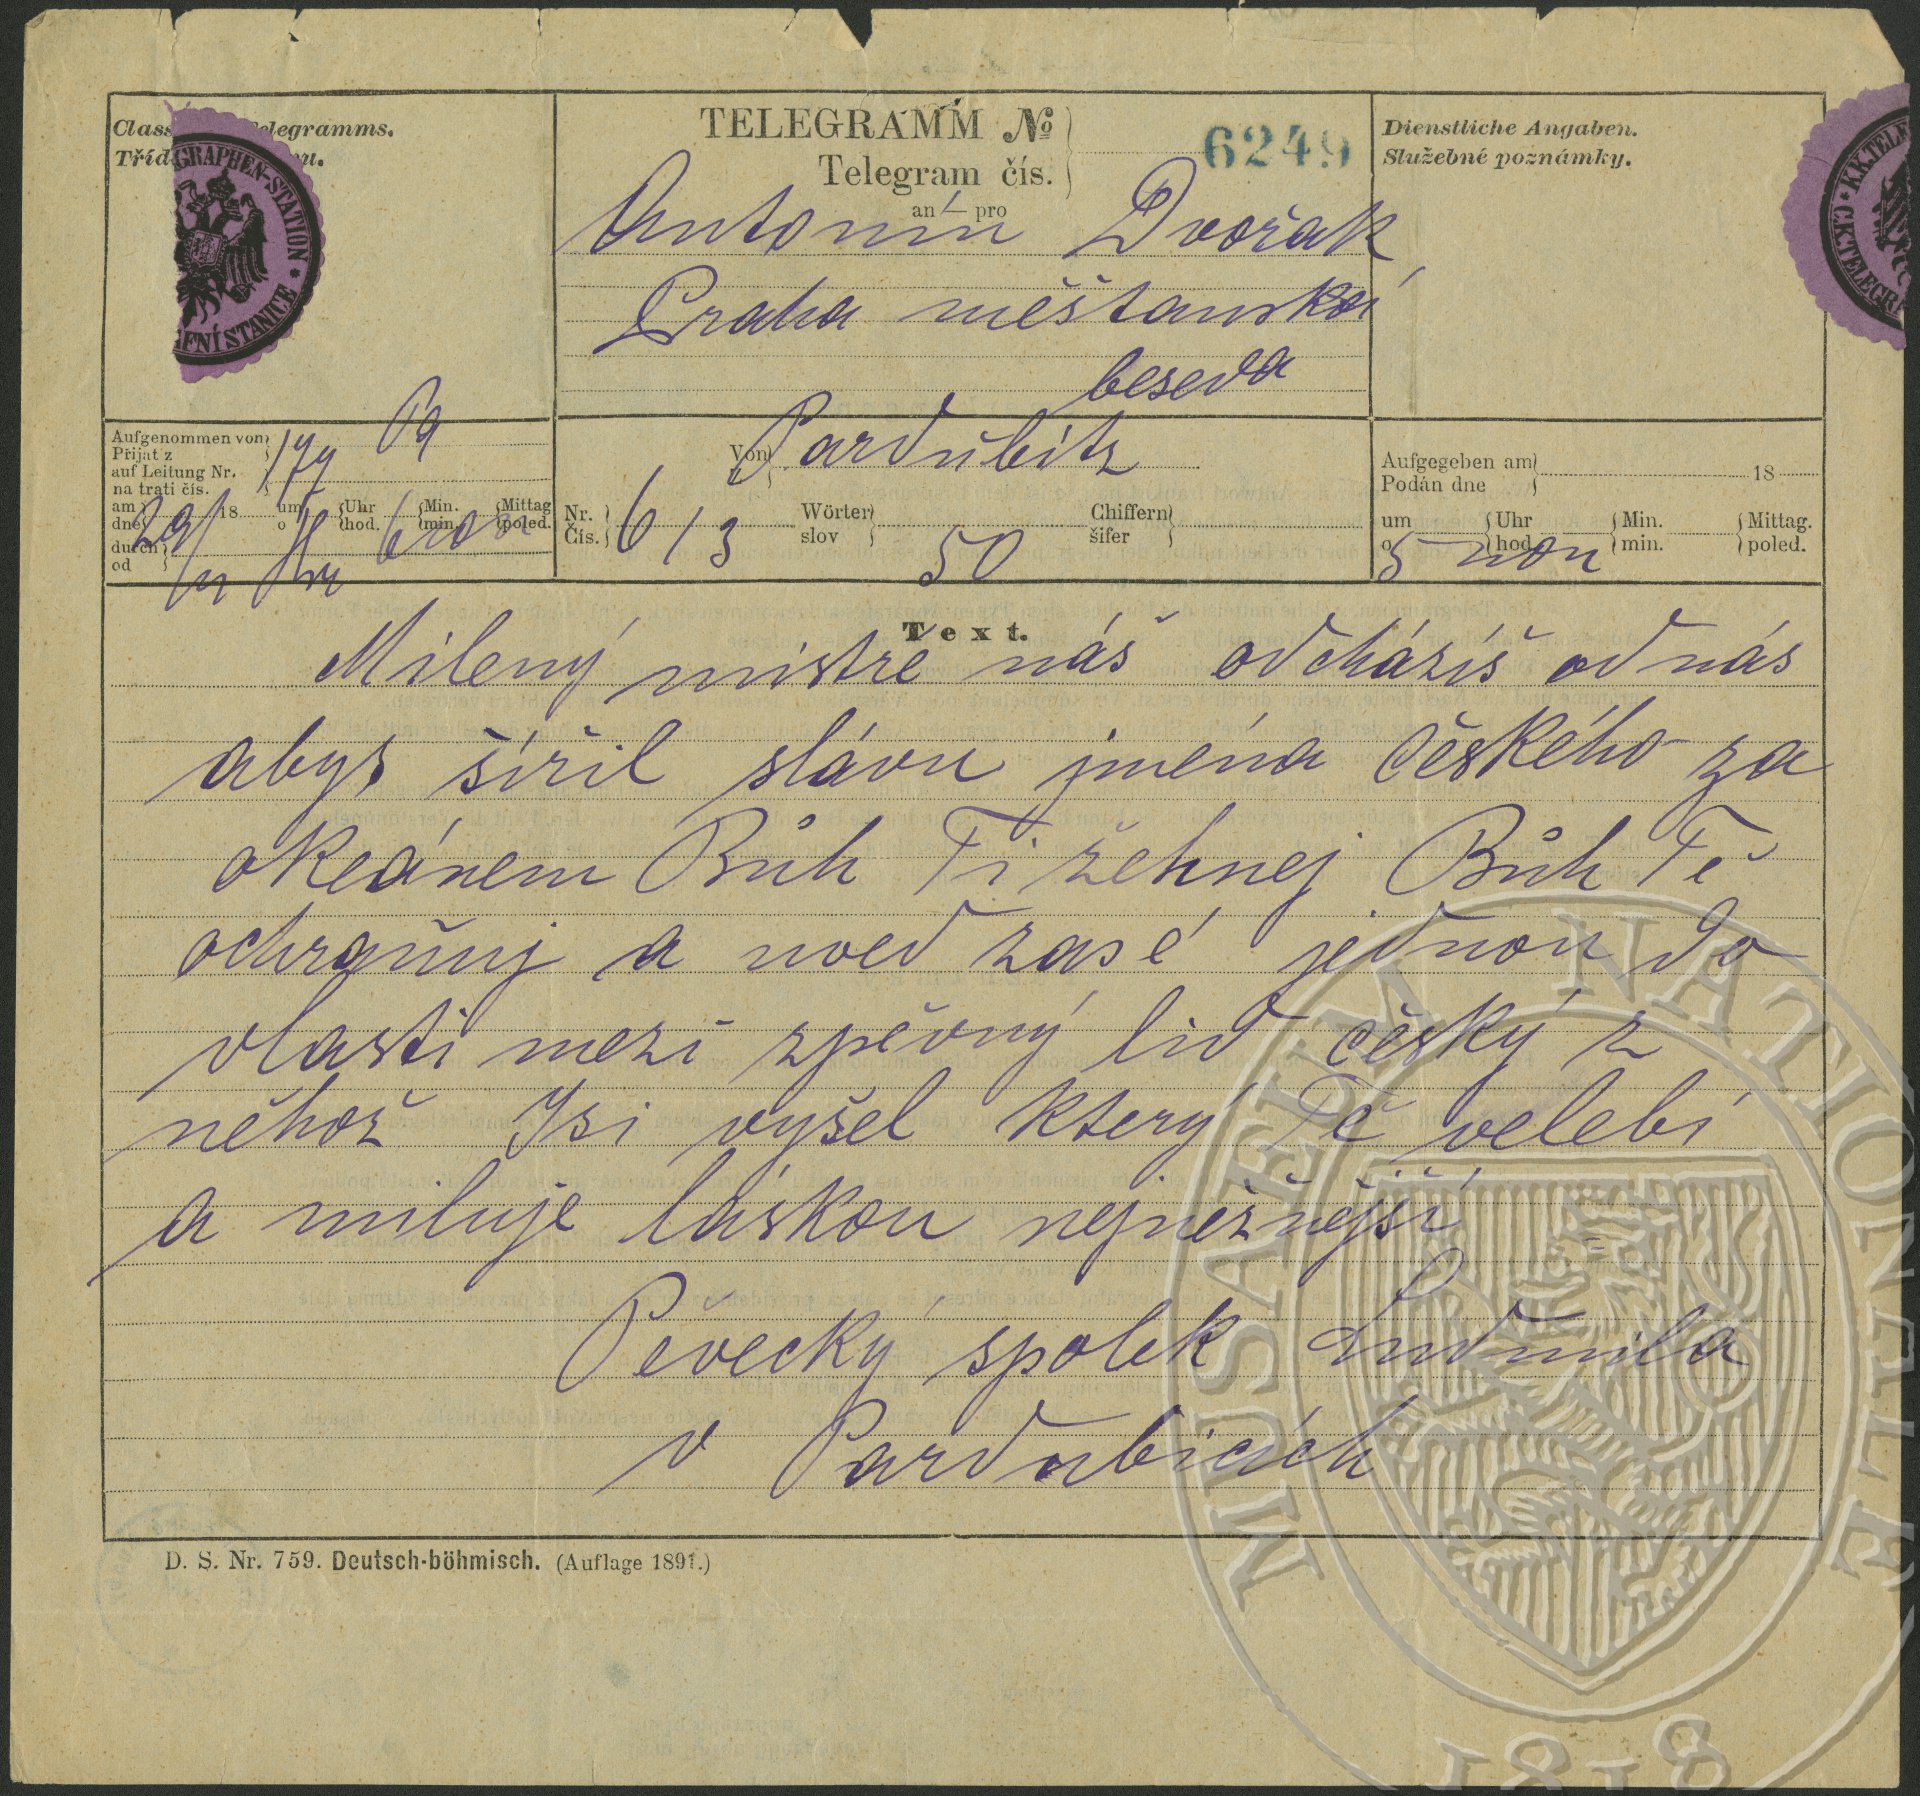 TELEGRAMM №
Telegram čís.
6249
an — pro
Antonín Dvořák
Praha měšťanská
beseda
Telegramms.
GRAPHEN-STATION * ENÍ STANICE
Dienstliche Angaben.
Služebné poznámky.
K.K.TELE
C.K.TELEGRA
Aufgenommen von
Přijat z
auf Leitung Nr.
na trati čís.
am 18 um Uhr Min. Mittag
dne o hod. min. poled.
durch
od
Von Pardubitz
Nr. 613 Wörter 50 Chiffern
Čís. slov šifer
Aufgegeben am 18
Podán dne
um Uhr Min. Mittag.
o 5 hod. min. poled.
Text.
Milený mistře náš odcházíš od nás
abys šířil slávu jména českého za
okeánem Bůh Ti žehnej Bůh Tě
ochraňuj a uveď zase jednou do
vlasti mezi zpěvný lid český z
něhož Jsi vyšel který Tě velebí
a miluje láskou nejněžnější
Pěvecký spolek Ludmila
v Pardubicích
D. S. Nr. 759. Deutsch-böhmisch. (Auflage 1891.)
MUSAEUM NATIONALE
1818